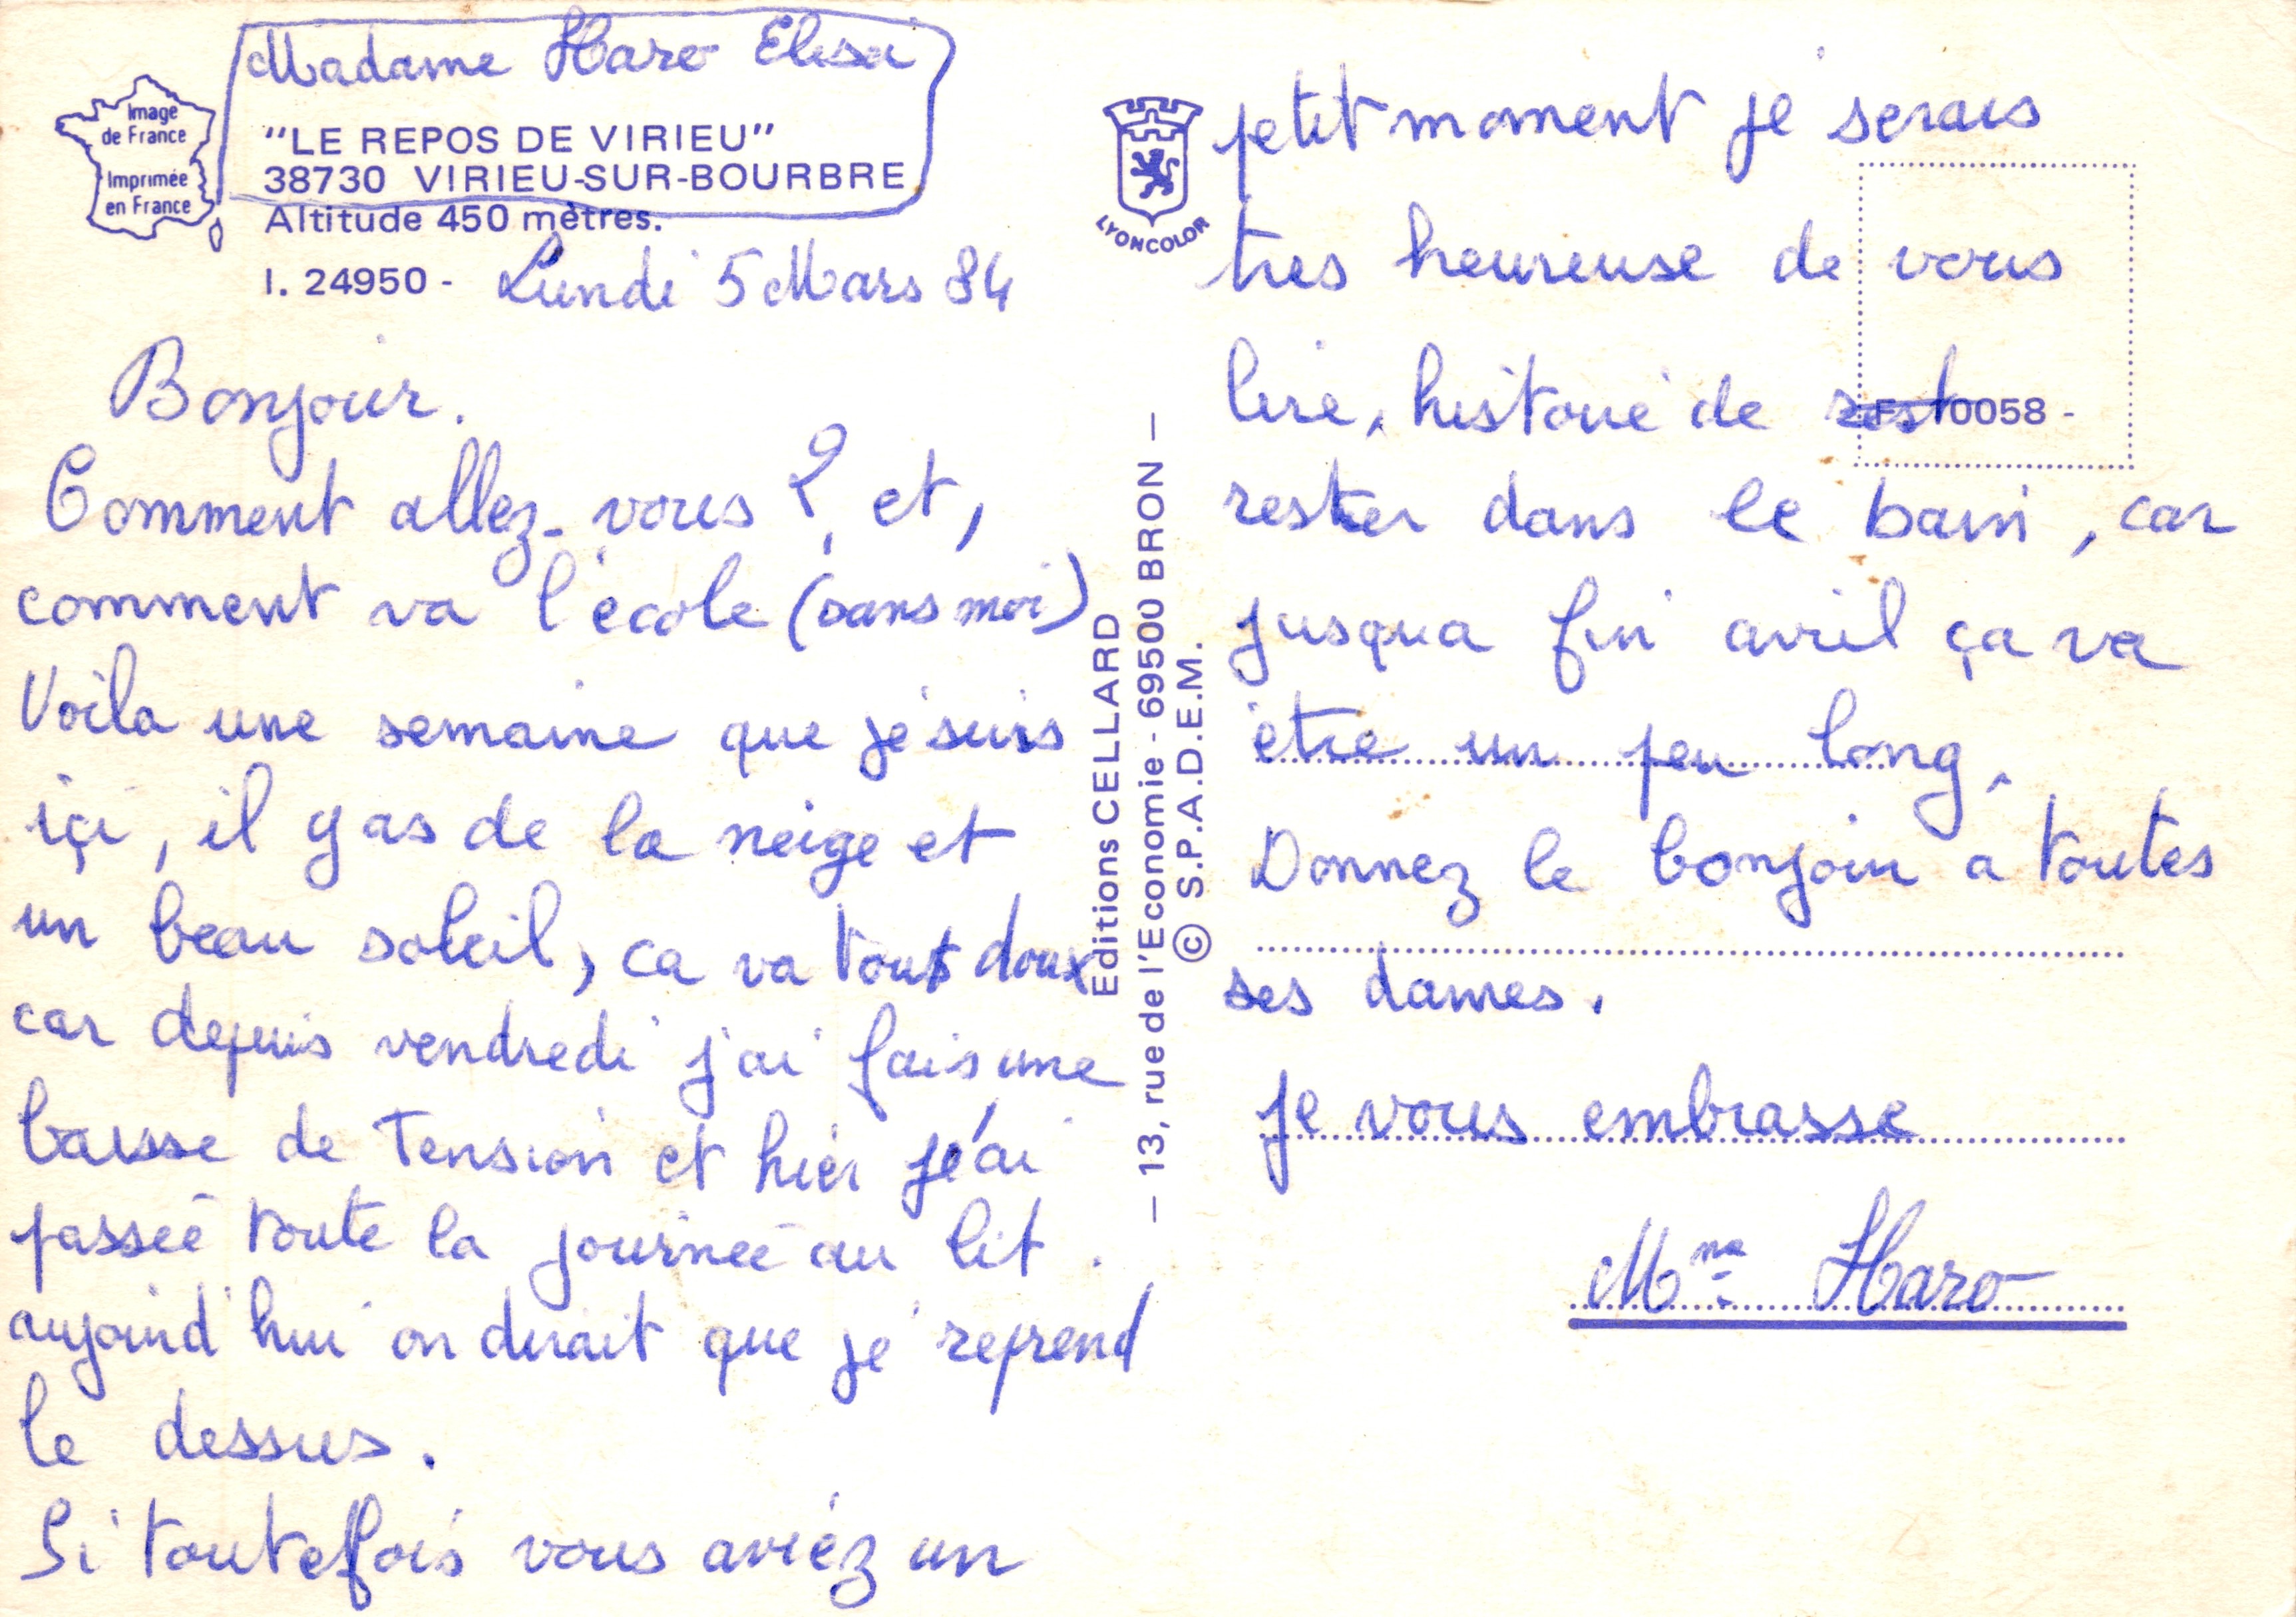 Madame Haro Elisa
Image
de France
Imprimée
en France
"LE REPOS DE VIRIEU"
38730 VIRIEU-SUR-BOURBRE
Altitude 450 mètres.
I. 24950 - Lundi 5 Mars 84
Bonjour.
Comment allez-vous ?, et,
comment va l'école (sans moi)
Voila une semaine que je suis
içi, il y as de la neige et
un beau soleil, ca va tout doux
car depuis vendredi j'ai fais une
baisse de Tension et hier j'ai
passée toute la journée au lit.
aujourd'hui on dirait que je reprend
le dessus.
Si toutefois vous aviéz un
Editions CELLARD
— 13, rue de l'Economie - 69500 BRON —
© S.P.A.D.E.M.
LYONCOLOR
petit moment je serais
tres heureuse de vous
lire, histoire de rest 0058 -
rester dans le bain, car
jusqua fin avril ça va
être un peu long.
Donnez le bonjour a toutes
ses dames.
je vous embrasse
Mme Haro